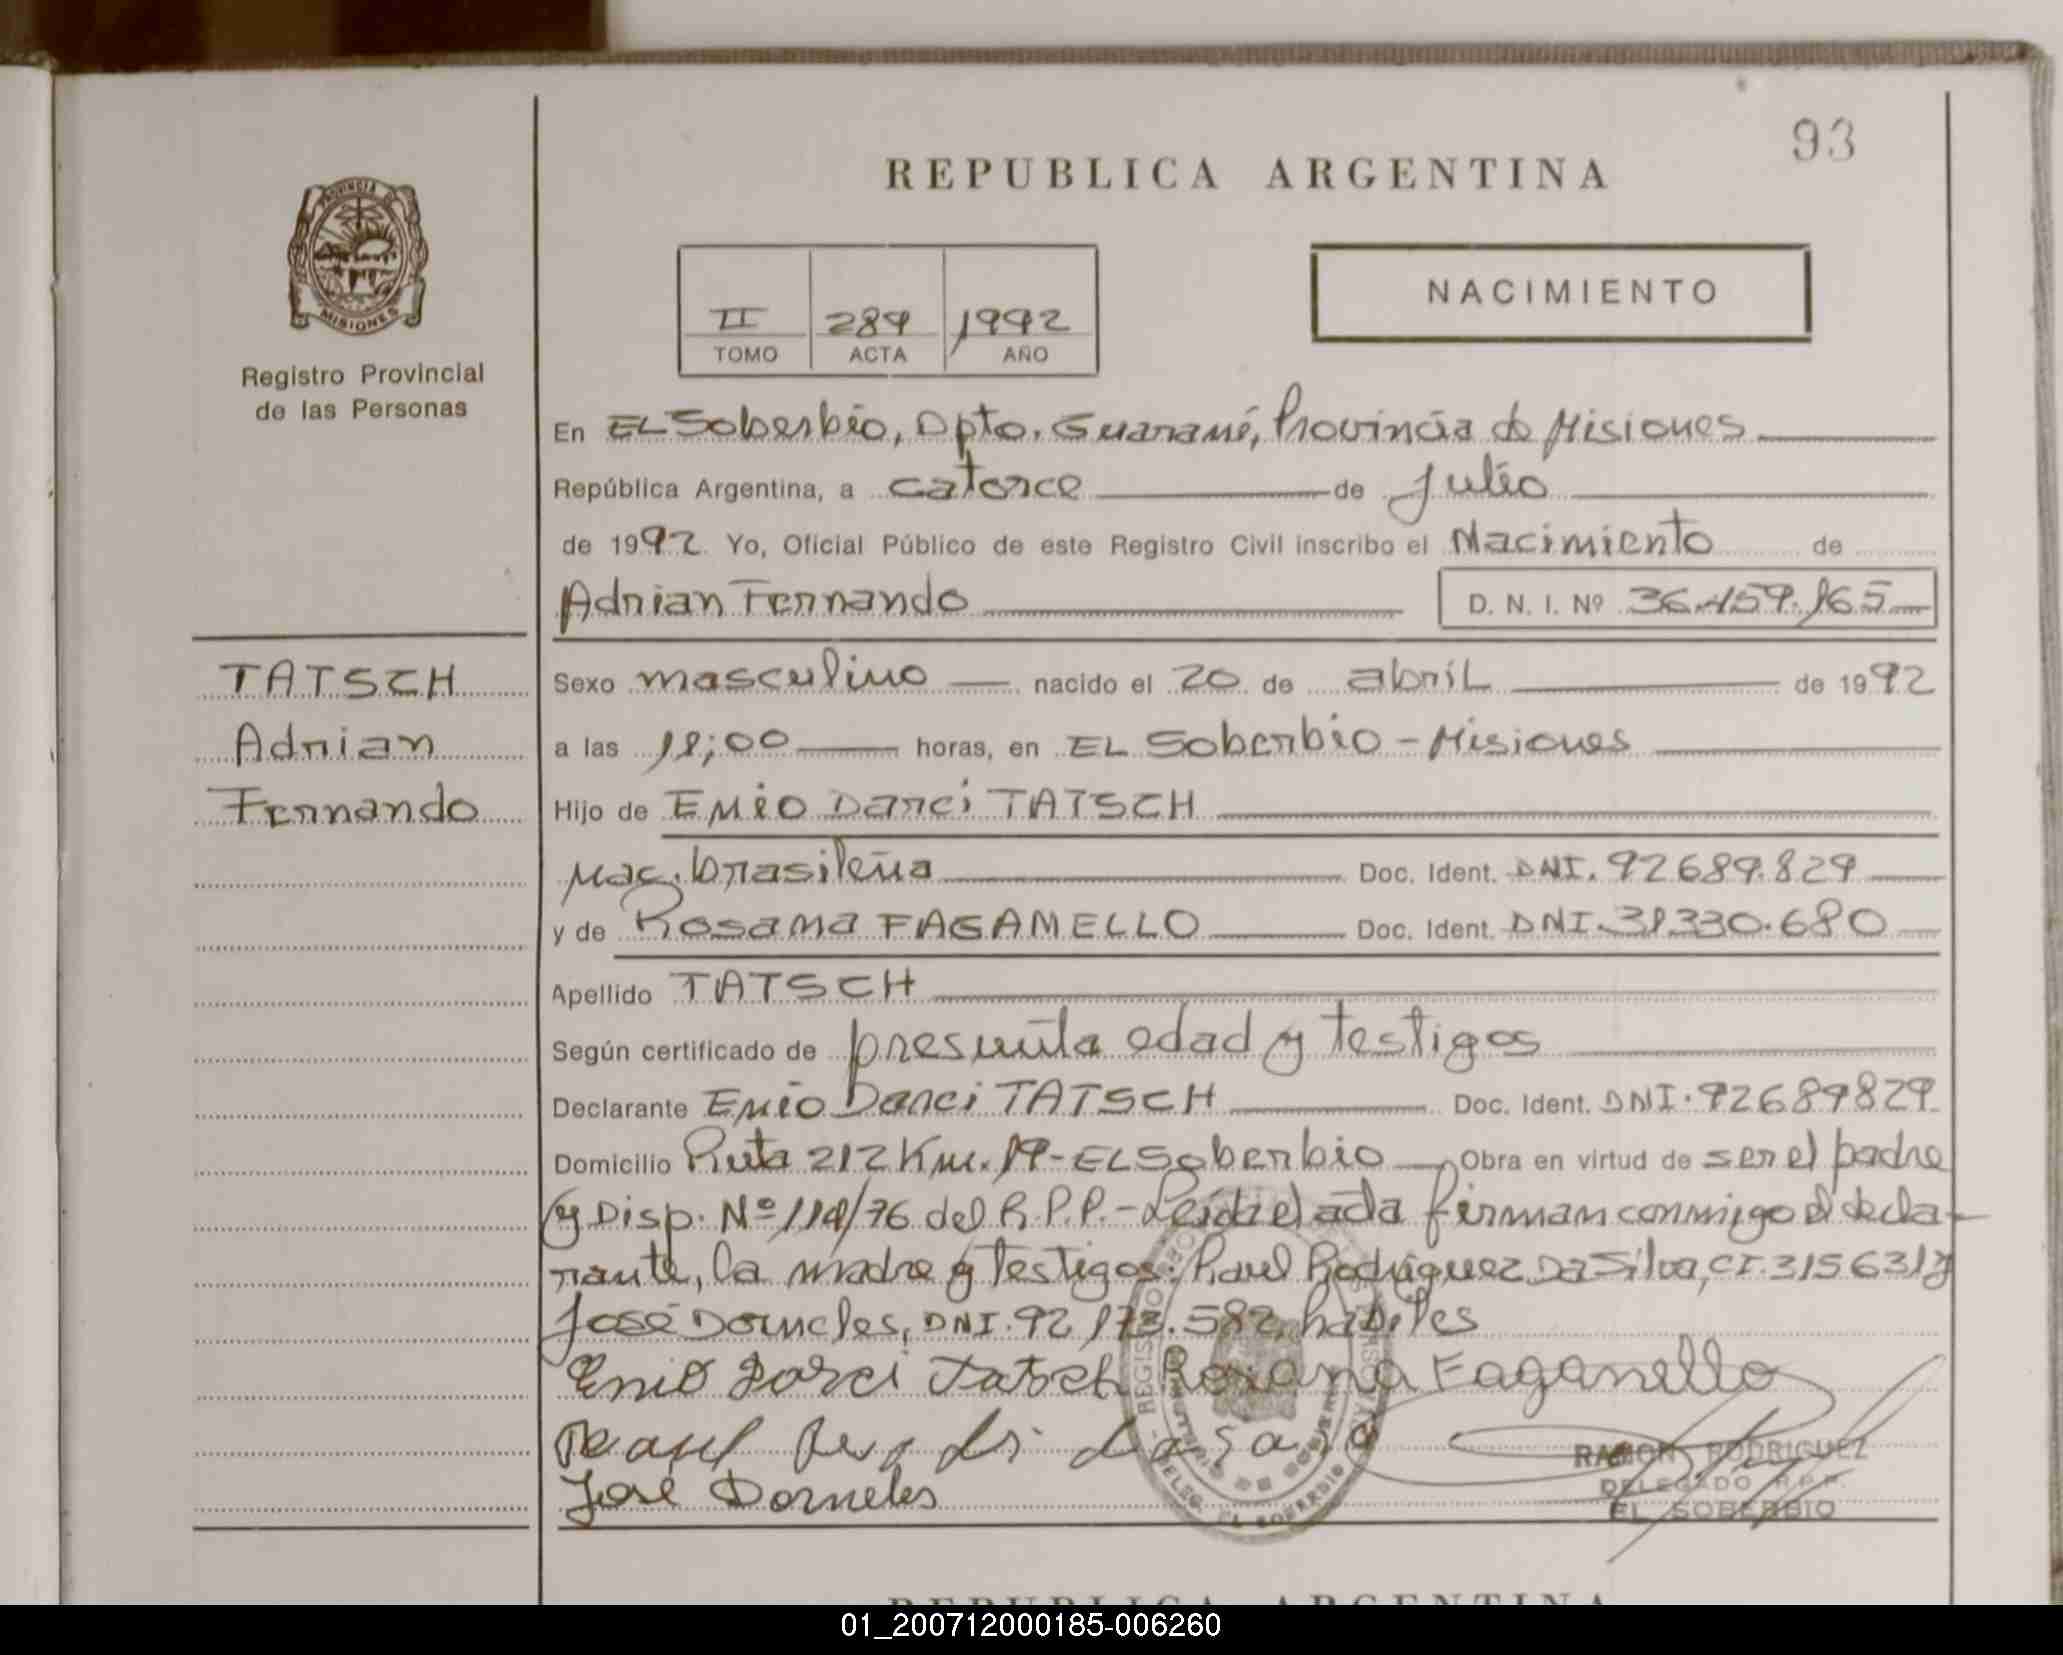 93
REPUBLICA ARGENTINA
NACIMIENTO
II 289 1992
TOMO ACTA AÑO
PROVINCIA DE
MISIONES
Registro Provincial
de las Personas
En EL Soberbio, Dpto. Guaraní, Provincia de Misiones
República Argentina, a catorce de Julio
de 1992 Yo, Oficial Público de este Registro Civil inscribo el Nacimiento de
Adrian Fernando D. N. I. Nº 36.459.165
TATSCH
Adrian
Fernando
Sexo masculino nacido el 20 de abril de 1992
a las 18;00 horas, en EL Soberbio - Misiones
Hijo de Enio Darci TATSCH
Nac. brasileña Doc. Ident. DNI. 92689.829
y de Rosana FAGANELLO Doc. Ident. DNI. 31.330.680
Apellido TATSCH
Según certificado de presunta edad y testigos
Declarante Enio Darci TATSCH Doc. Ident. DNI. 92689829
Domicilio Ruta 212 Km. 19 - EL Soberbio Obra en virtud de ser el padre
y Disp. Nº 114/76 del R.P.P. - Leída el acta firman conmigo el decla-
rante, la madre y testigos: Raul Rodriguez Da Silva, CI. 315631 y
José Dorneles, DNI. 92 173.582, habiles
Enio Darci Tatsch Rosana Faganello
José Dorneles
RAMON RODRIGUEZ
DELEGADO R.P.P.
EL SOBERBIO
REPUBLICA ARGENTINA
01_200712000185-006260